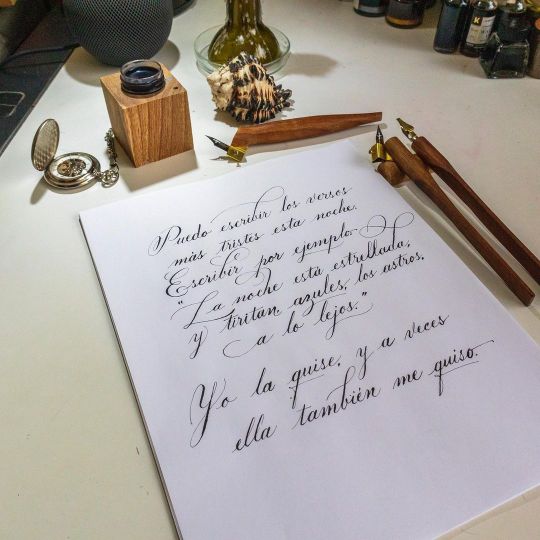 Puedo escribir los versos
más tristes esta noche.
Escribir por ejemplo.
"La noche está estrellada,
y tiritan, azules, los astros,
a lo lejos."
Yo la quise, y a veces
ella también me quiso.